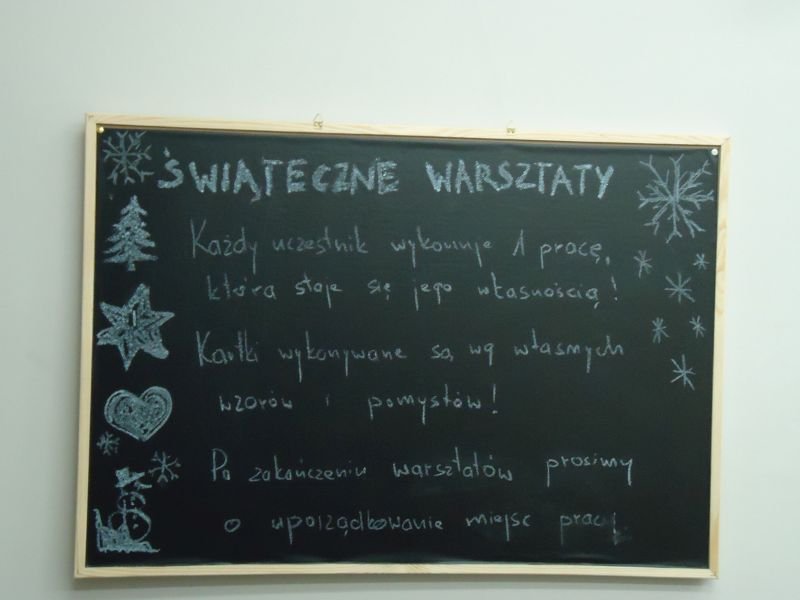 ŚWIĄTECZNE WARSZTATY
Każdy uczestnik wykonuje 1 pracę,
która staje się jego własnością!
Kartki wykonywane są wg własnych
wzorów i pomysłów!
Po zakończeniu warsztatów prosimy
o uporządkowanie miejsc pracy.